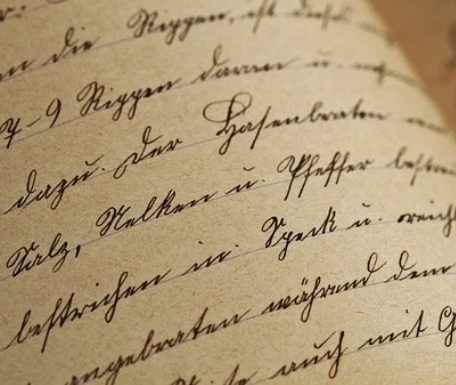 die Rippen, ist
7-9 Rippen daran u.
dazu. Der Hasenbraten
Salz, Nelken u. Pfeffer
bestrichen in Speck u.
angebraten während dem
auch mit